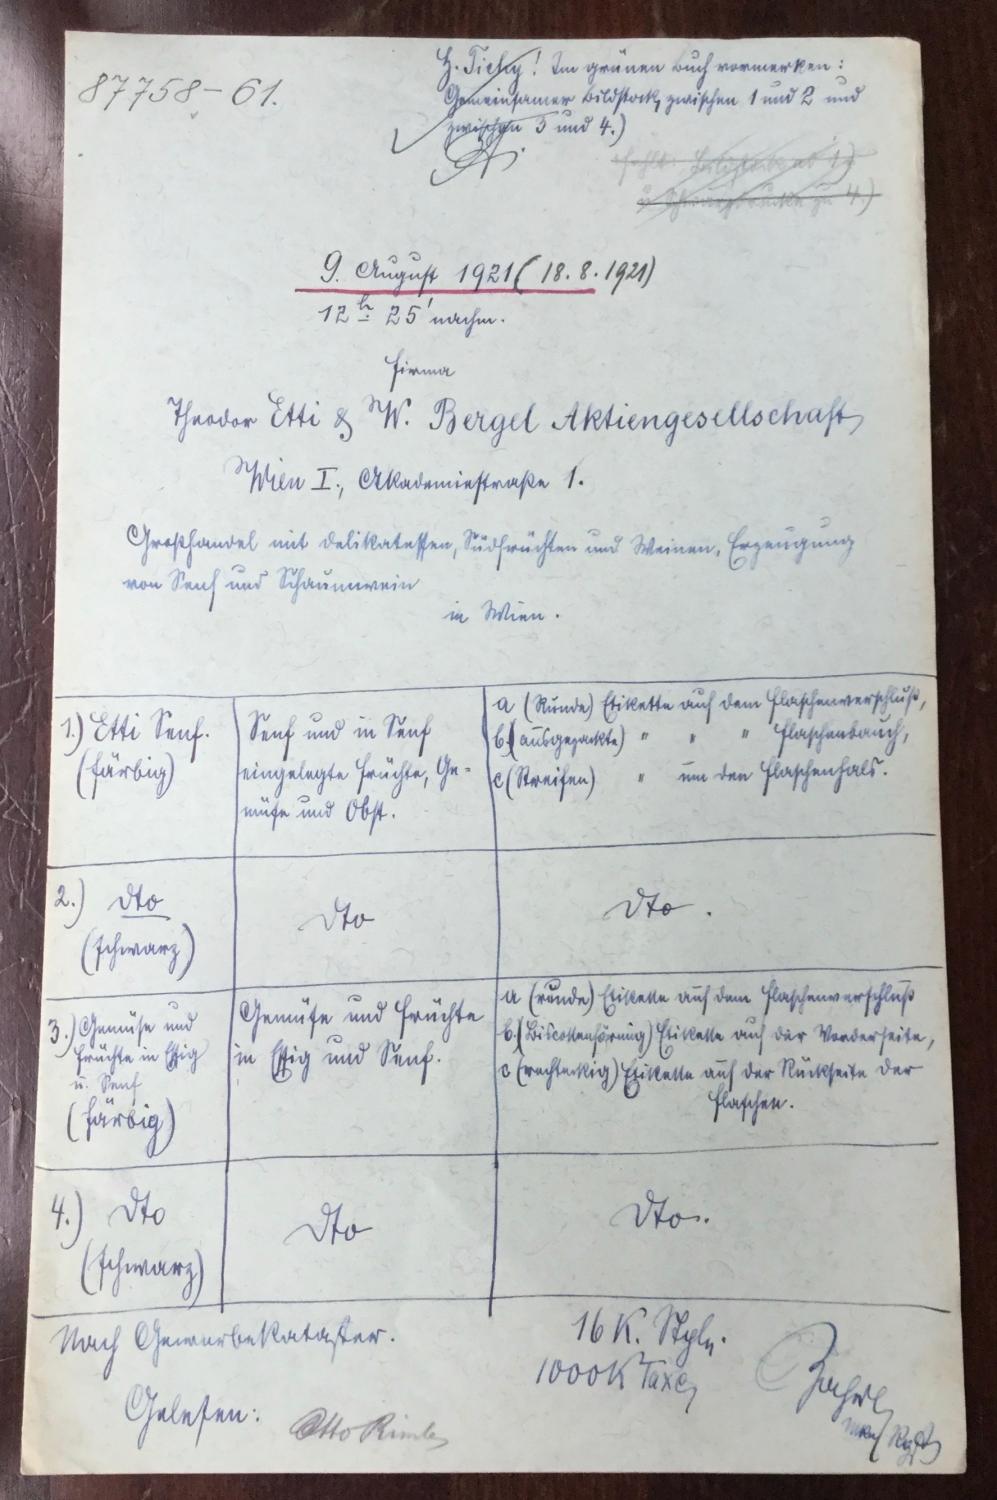 87758-61.
H. Tichy! Im grünen Buch vormerken:
Gemeinsamer Bildstock, zwischen 1 und 2 und
zwischen 3 und 4.)
fehlt 1.)
zu 4.)
9. August 1921 (18.8.1921)
12 h 25' nachm.
Firma
Theodor Etti & W. Bergel Aktiengesellschaft,
Wien I., Akademiestraße 1.
Großhandel mit Delikatessen, Südfrüchten und Weinen, Erzeugung
von Senf und Schaumwein
in Wien.
1.) Etti Senf.
(färbig)
Senf und in Senf
eingelegte Früchte, Ge-
müse und Obst.
a (Runde) Etikette auf dem Flaschenverschluß,
b.) (ausgezackte) " " " Flaschenbauch,
c (Streifen) " um den Flaschenhals.
2.) dto
(schwarz)
dto
dto.
3.) Gemüse und
Früchte in Essig
u. Senf
(färbig)
Gemüse und Früchte
in Essig und Senf.
a (runde) Etikette auf dem Flaschenverschluß
b.) (Biscottenförmig) Etikette auf der Vorderseite,
c (rechteckig) Etikette auf der Rückseite der
Flaschen.
4.) dto
(schwarz)
dto
dto.
Nach Gewerbekataster.
16 K. Stplg.
1000 K Taxe,
Gelesen:
Otto